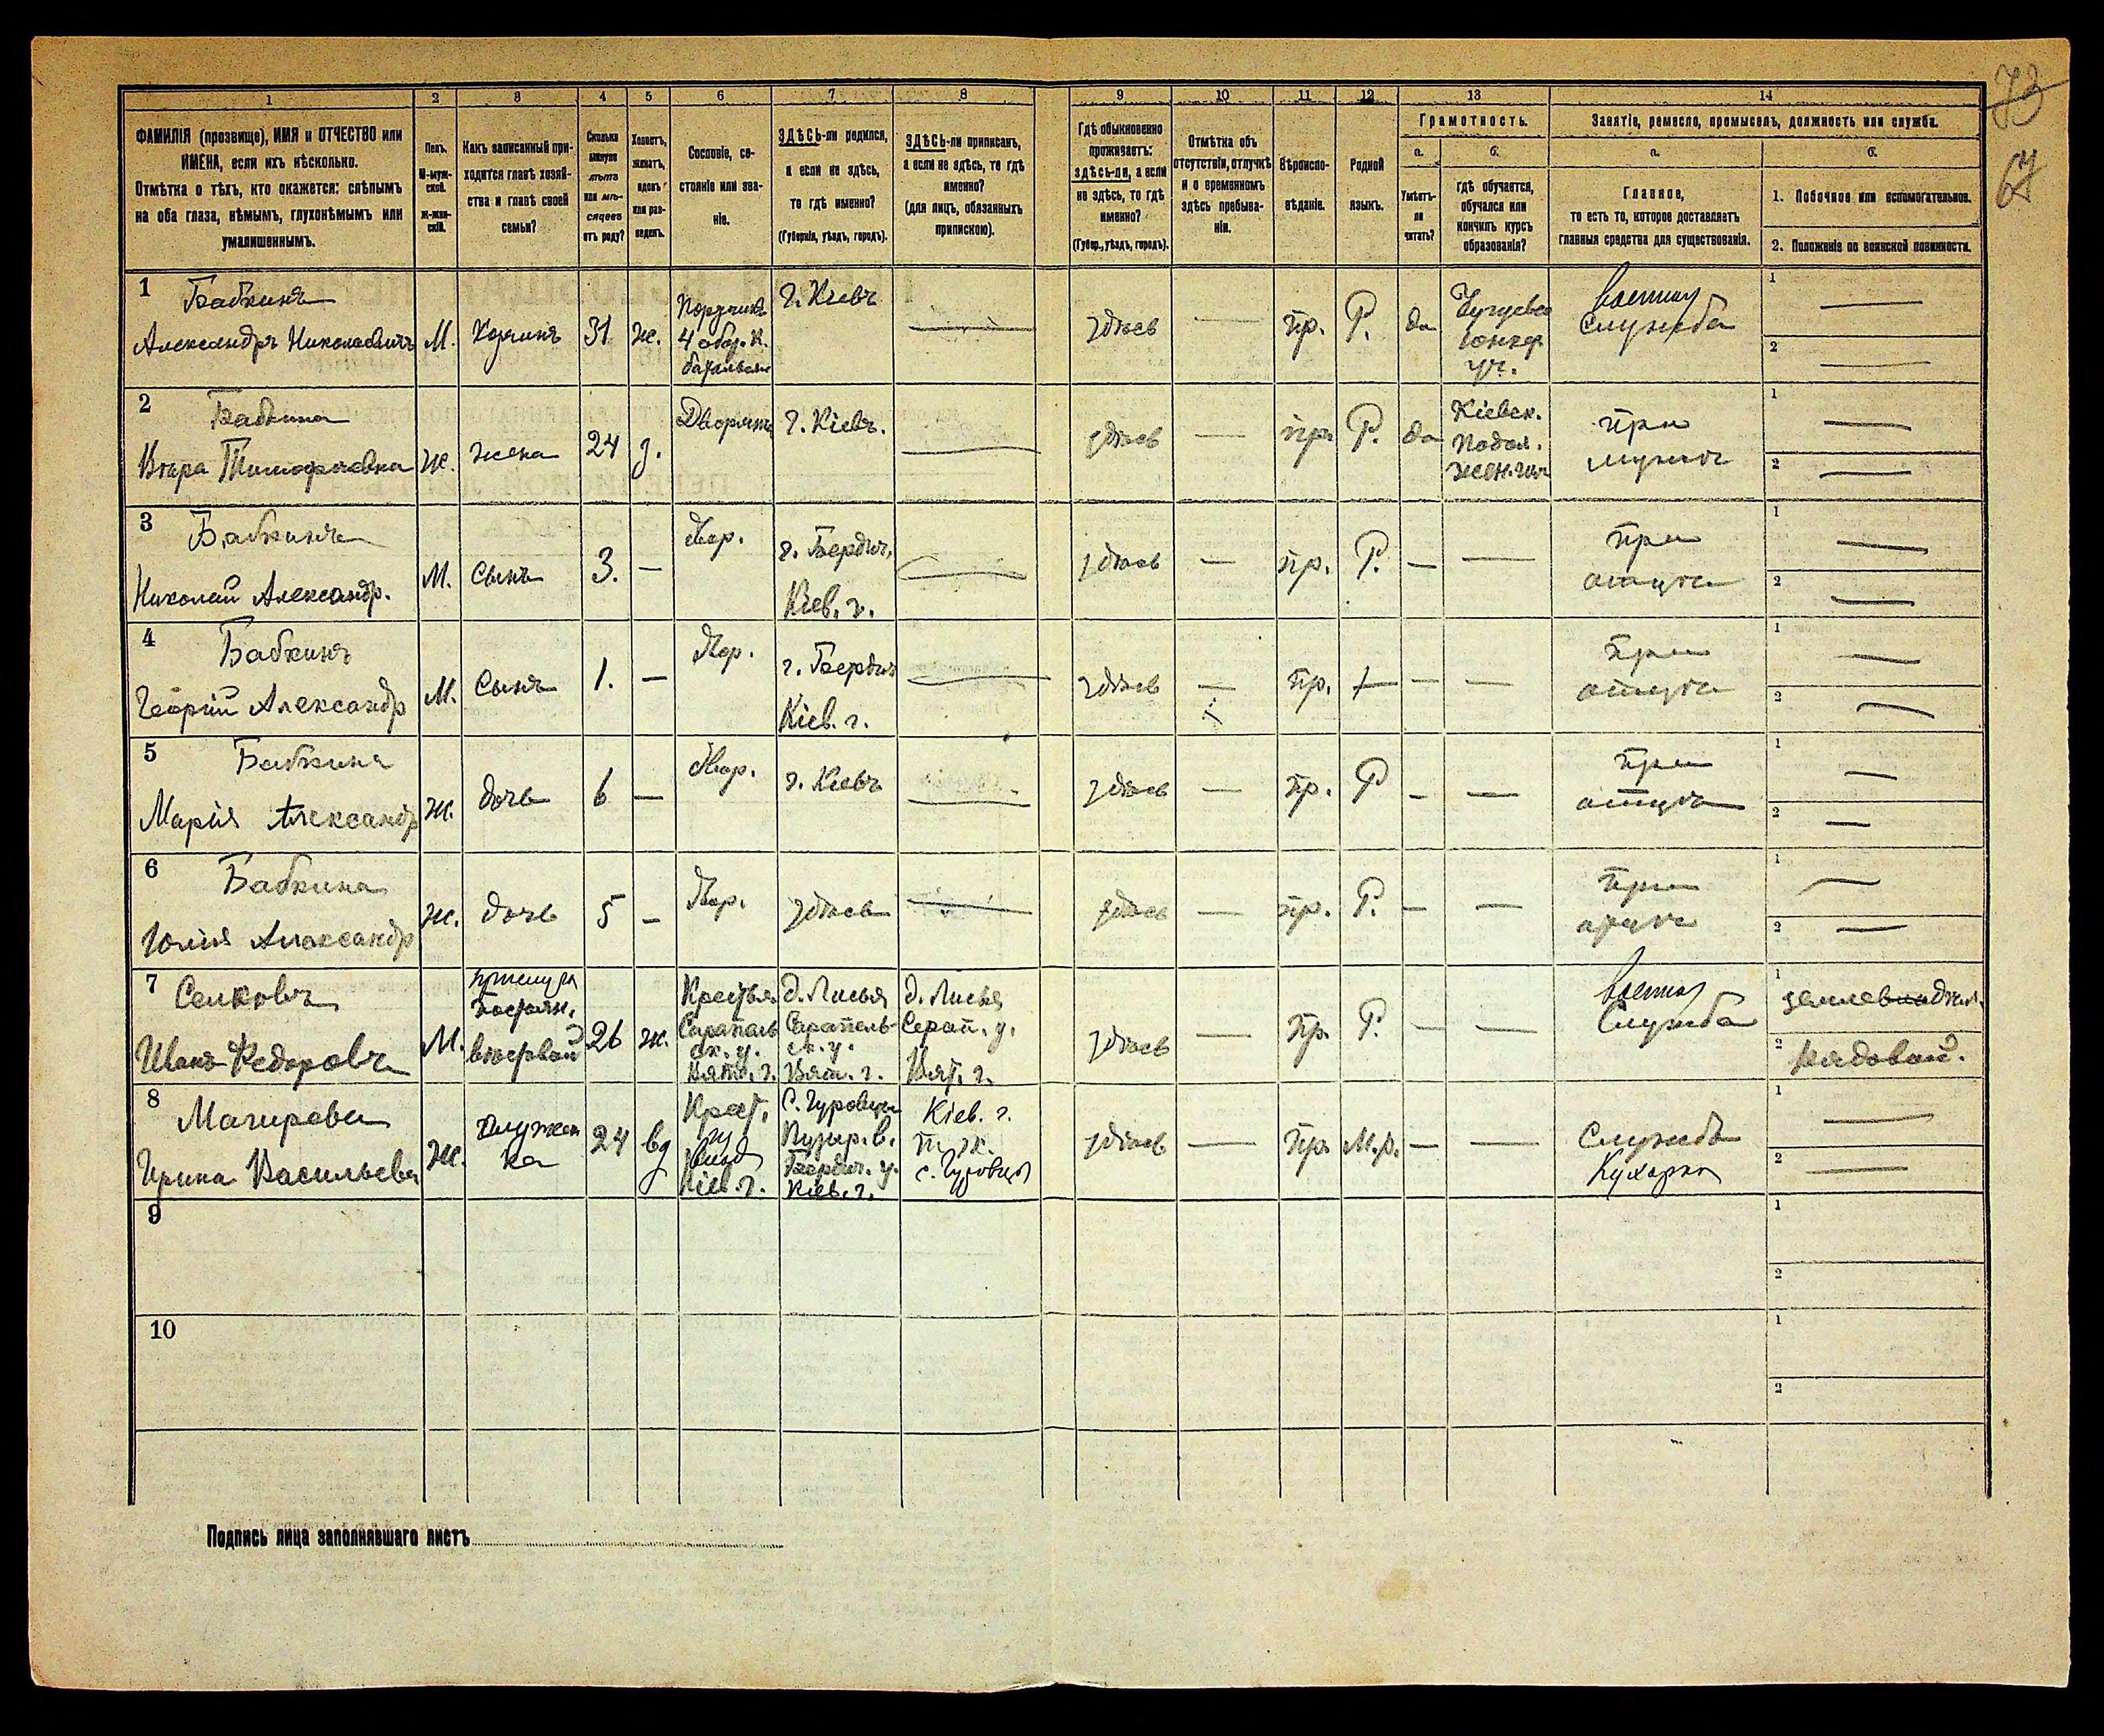 73
67
1 2 3 4 5 6 7 8 9 10 11 12 13 14
ФАМИЛІЯ (прозвище), ИМЯ и ОТЧЕСТВО или
ИМЕНА, если ихъ нѣсколько.
Отмѣтка о тѣхъ, кто окажется: слѣпымъ
на оба глаза, нѣмымъ, глухонѣмымъ или
умалишеннымъ.
Полъ.
М-муж-
ской.
ж-жен-
скій.
Какъ записанный при-
ходится главѣ хозяй-
ства и главѣ своей
семьи?
Сколько
минуло
лѣтъ
или мѣ-
сяцевъ
отъ роду?
Холостъ,
женатъ,
вдовъ
или раз-
веденъ.
Сословіе, со-
стояніе или зва-
ніе.
ЗДѢСЬ-ли родился,
а если не здѣсь,
то гдѣ именно?
(Губернія, уѣздъ, городъ).
ЗДѢСЬ-ли приписанъ,
а если не здѣсь, то гдѣ
именно?
(для лицъ, обязанныхъ
припискою).
Гдѣ обыкновенно
проживаетъ:
здѣсь-ли, а если
не здѣсь, то гдѣ
именно?
(Губер., уѣздъ, городъ).
Отмѣтка объ
отсутствіи, отлучкѣ
и о временномъ
здѣсь пребыва-
ніи.
Вѣроиспо-
вѣданіе.
Родной
языкъ.
Грамотность.
а.
Умѣетъ-
ли
читать?
б.
Гдѣ обучается,
обучался или
кончилъ курсъ
образованія?
Занятіе, ремесло, промыселъ, должность или служба.
а.
Главное,
то есть то, которое доставляетъ
главныя средства для существованія.
б.
1. Побочное или вспомогательное.
2. Положеніе по воинской повинности.
1 Бабкинъ
Александръ Николаевичъ
М.
Хозяинъ
31
ж.
Поручикъ
4 обоз. к.
батальона
г. Кіевъ
здѣсь
пр.
Р.
да
Чугуевск
юнкер.
уч.
Военная
служба
1
2
2 Бабкина
Вѣра Тимофеевна
Ж.
жена
24
з.
Дворянка
г. Кіевъ.
здѣсь
пр.
Р.
да
Кіевск.
Подол.
жен. гим
при
мужѣ
1
2
3 Бабкинъ
Николай Александр.
М.
Сынъ
3.
Двор.
г. Бердич.
Кіев. г.
здѣсь
пр.
Р.
при
отцѣ
1
2
4 Бабкинъ
Георгій Александр
М.
Сынъ
1.
Двор.
г. Бердич
Кіев. г.
здѣсь
пр.
при
отцѣ
1
2
5 Бабкина
Марія Александр
ж.
дочь
6
Двор.
г. Кіевъ
здѣсь
пр.
Р
при
отцѣ
1
2
6 Бабкина
Юлія Александр
ж.
дочь
5
Двор.
здѣсь
здѣсь
пр.
Р.
при
отцѣ
1
2
7
Иванъ Федоровъ
М.
26
ж.
Крестья.
Сарапуль
ск. у.
Вятс. г.
д. Лисья
Сарапель-
ск. у.
Вят. г.
д. Лисья
Сарап. у.
Вят. г.
здѣсь
пр.
Р.
Военная
Служба
1
2 Рядовой.
8
Ирина Васильева
Ж.
служан
ка
24
вд
Крест.
Кіев. г.
Бердич. у.
Кіев. г.
Кіев. г.
здѣсь
пр.
М.р.
Служба
Кухарка
1
2
9
1
2
10
1
2
Подпись лица заполнявшаго листъ